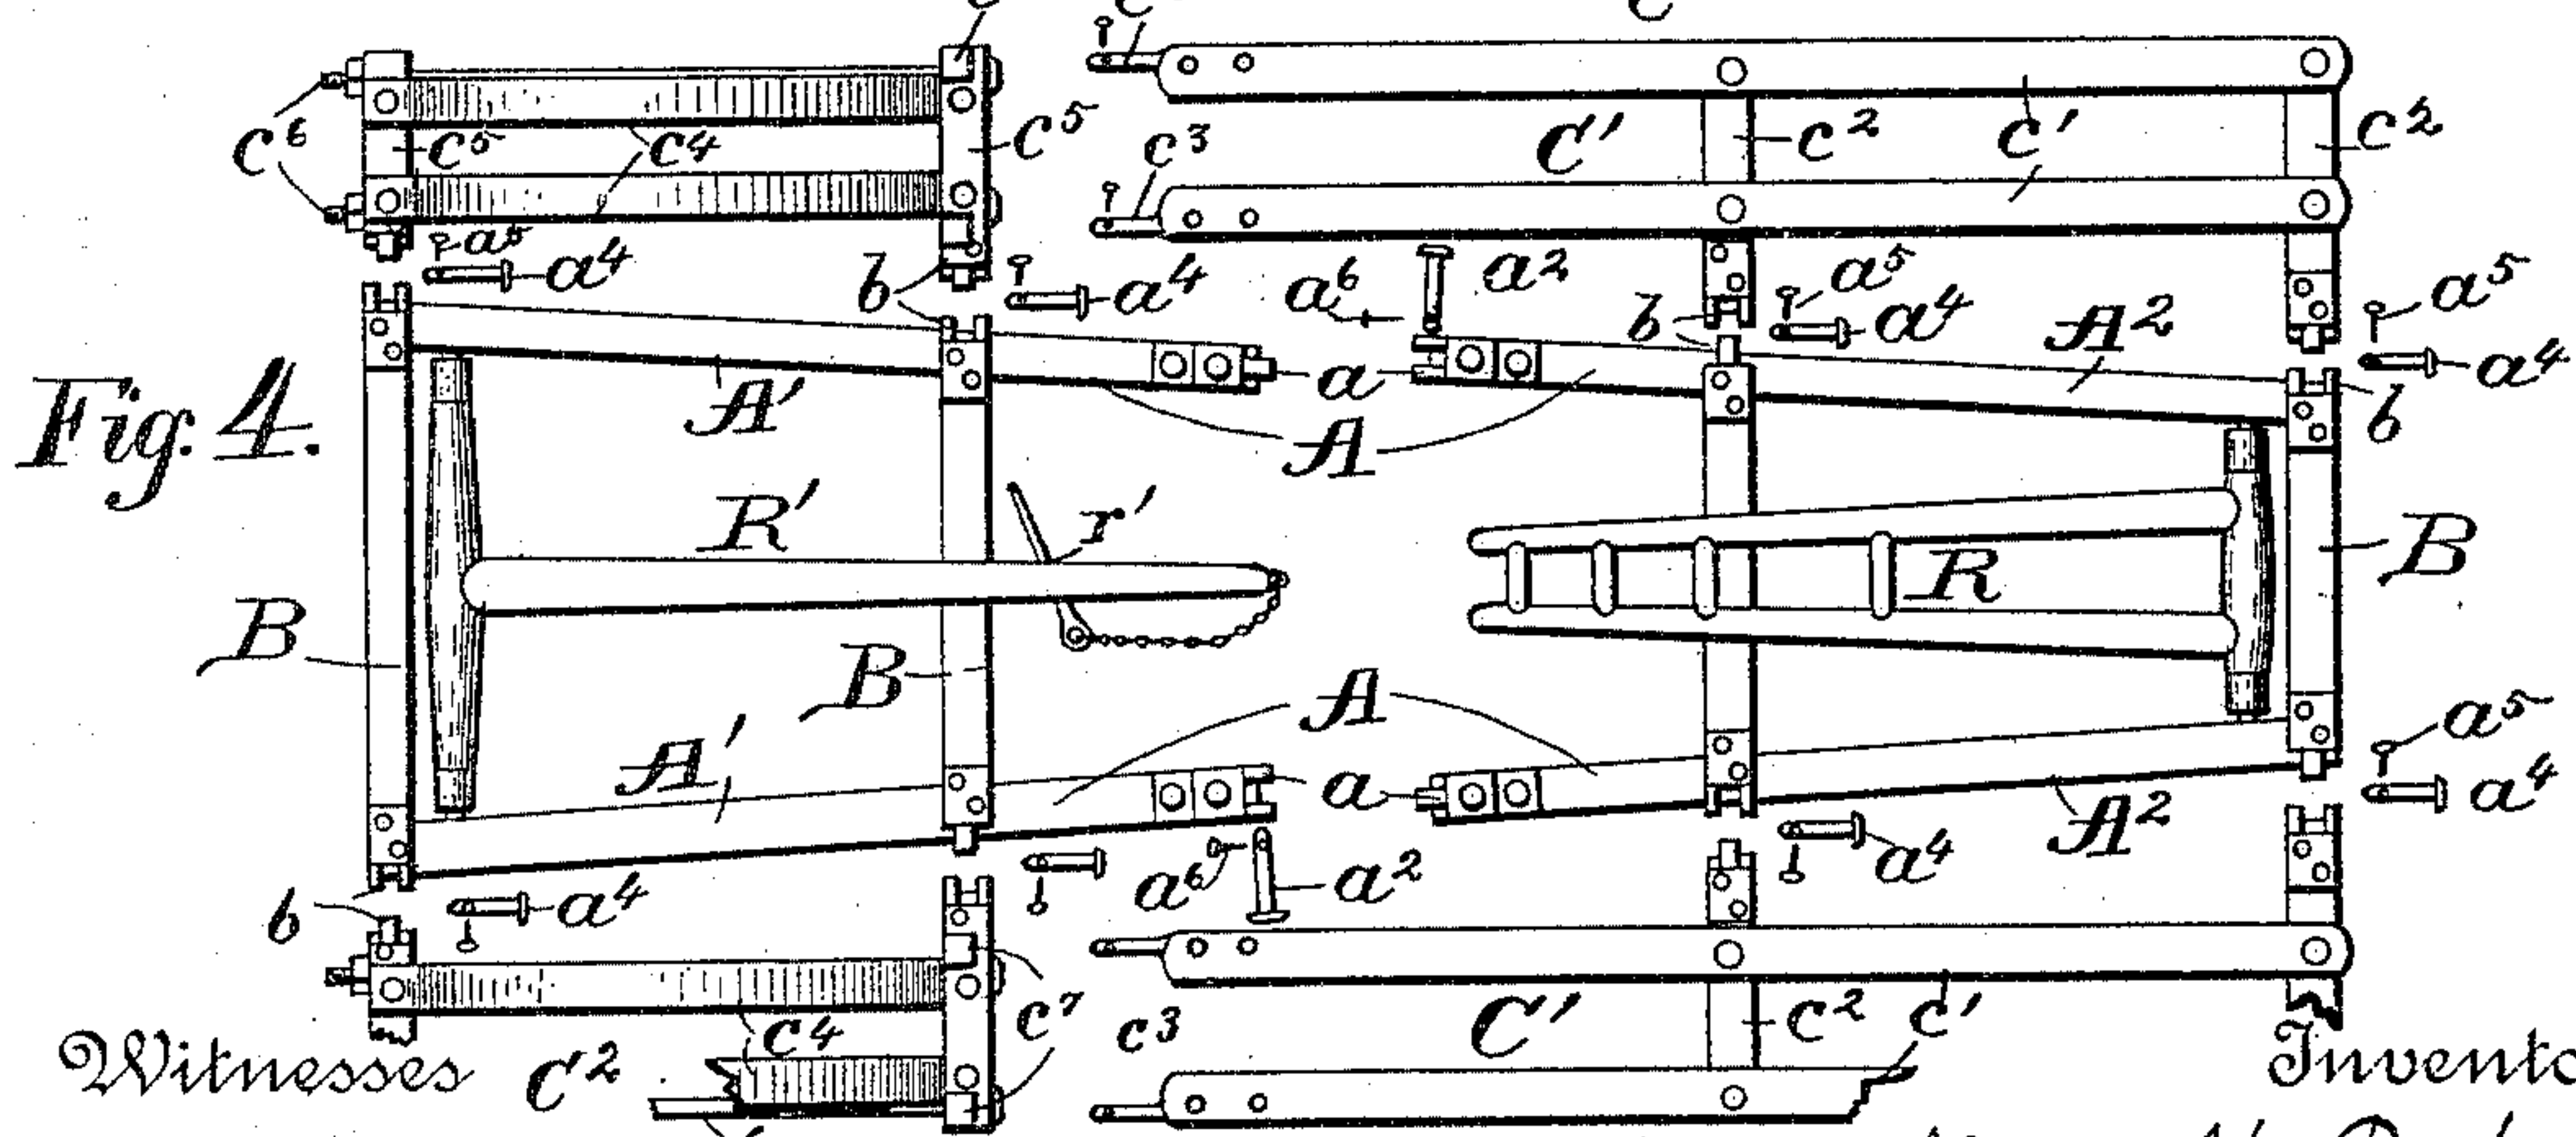 c⁶ c⁵ c⁴ c⁵ c³ C' c² c' c²
a⁵ a⁴ b a⁴ a⁶ a² b a⁵ a⁴ a⁵ a⁴
Fig. 4. A' a A A² b
R' r' R B
B B
A' A a A² a⁵ a⁴
b a⁴ a⁶ a² a⁴
c⁴ c⁷ c³ C' c² c'
Witnesses C²